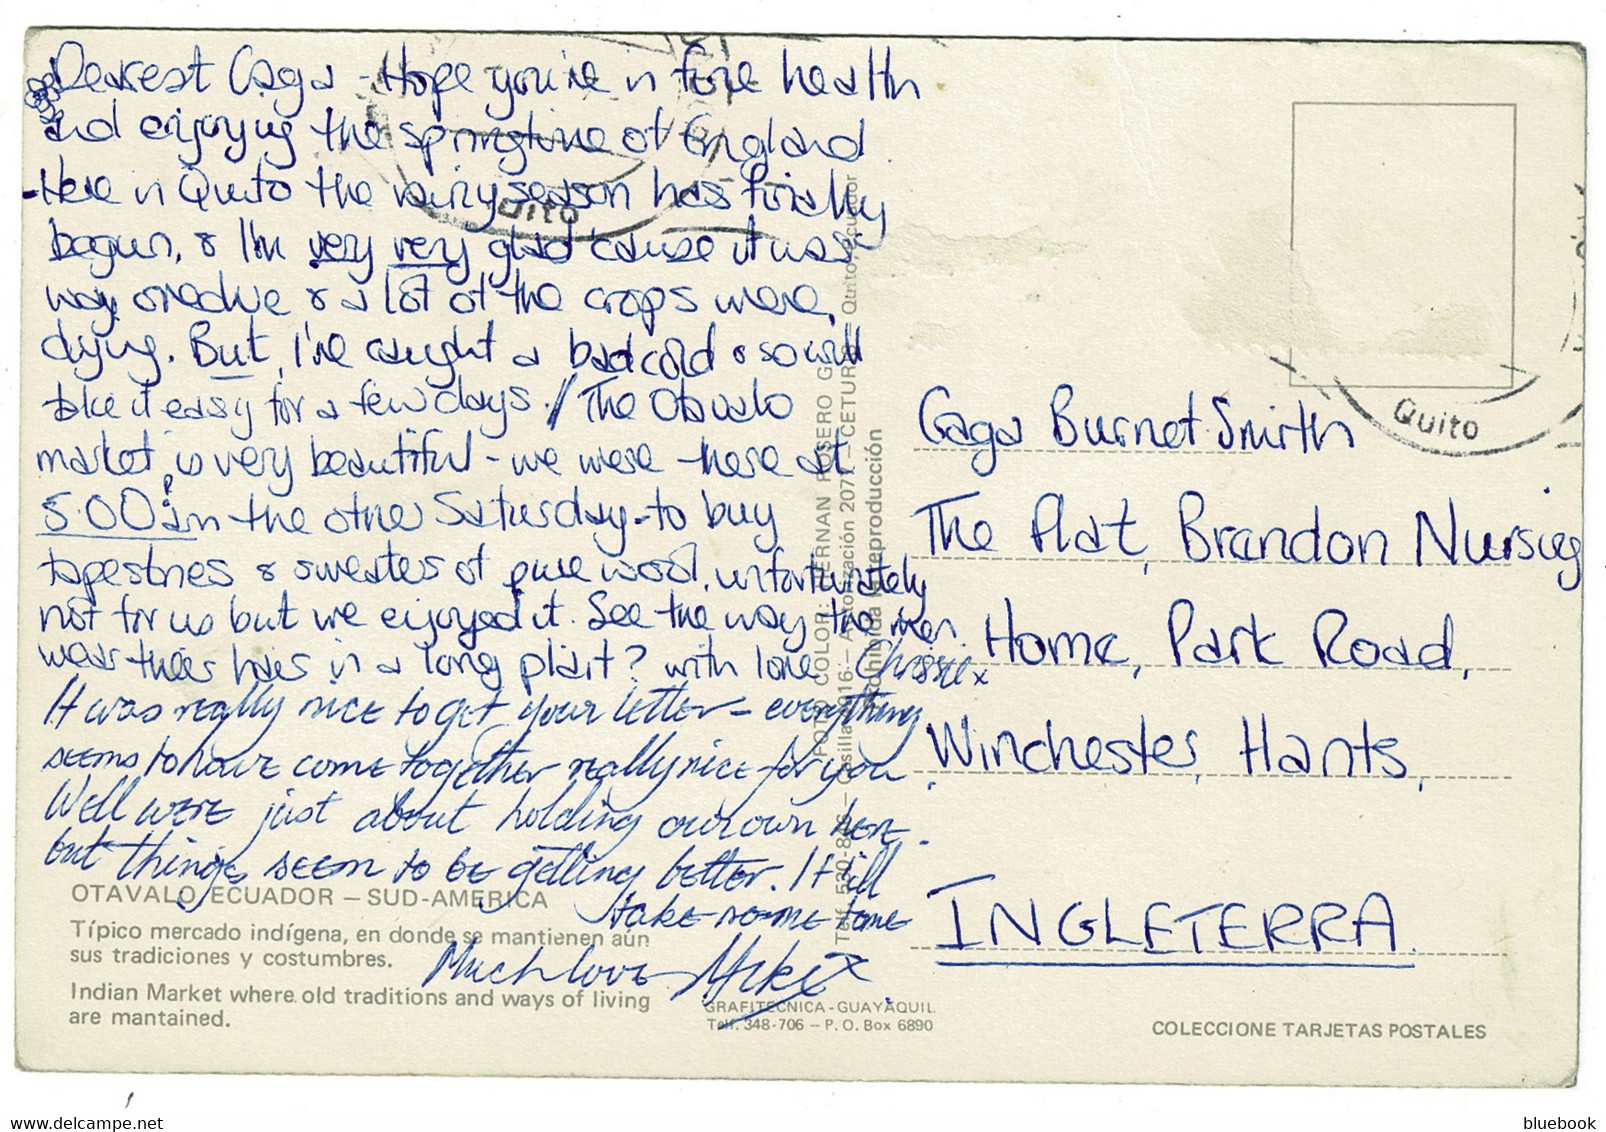 Dearest Gaga - Hope you're in fine health
and enjoying the springtime of England.
-Here in Quito the rainy season has finally
begun, & I'm very very glad 'cause it was
way overdue & a lot of the crops were
dying. But, I've caught a bad cold & so will
take it easy for a few days. // The Otavalo
market is very beautiful - we were there at
5.00am the other Saturday - to buy
tapestries & sweaters of pure wool, unfortunately
not for us but we enjoyed it. See the way the men
wear their hair in a long plait? with love Chrissie x
It was really nice to get your letter - everything
seems to have come together really nice for you.
Well were just about holding our own here.
but things seem to be getting better. It'll
take some time
Much love Mike x
OTAVALO, ECUADOR — SUD-AMERICA
Típico mercado indígena, en donde se mantienen aún
sus tradiciones y costumbres.
Indian Market where old traditions and ways of living
are mantained.
GRAFITECNICA - GUAYAQUIL
Telf. 348-706 – P. O. Box 6890
Quito
Quito
Gaga Burnet-Smith
The Flat, Brandon Nursing
Home, Park Road,
Winchester, Hants,
INGLETERRA.
COLECCIONE TARJETAS POSTALES
bluebook